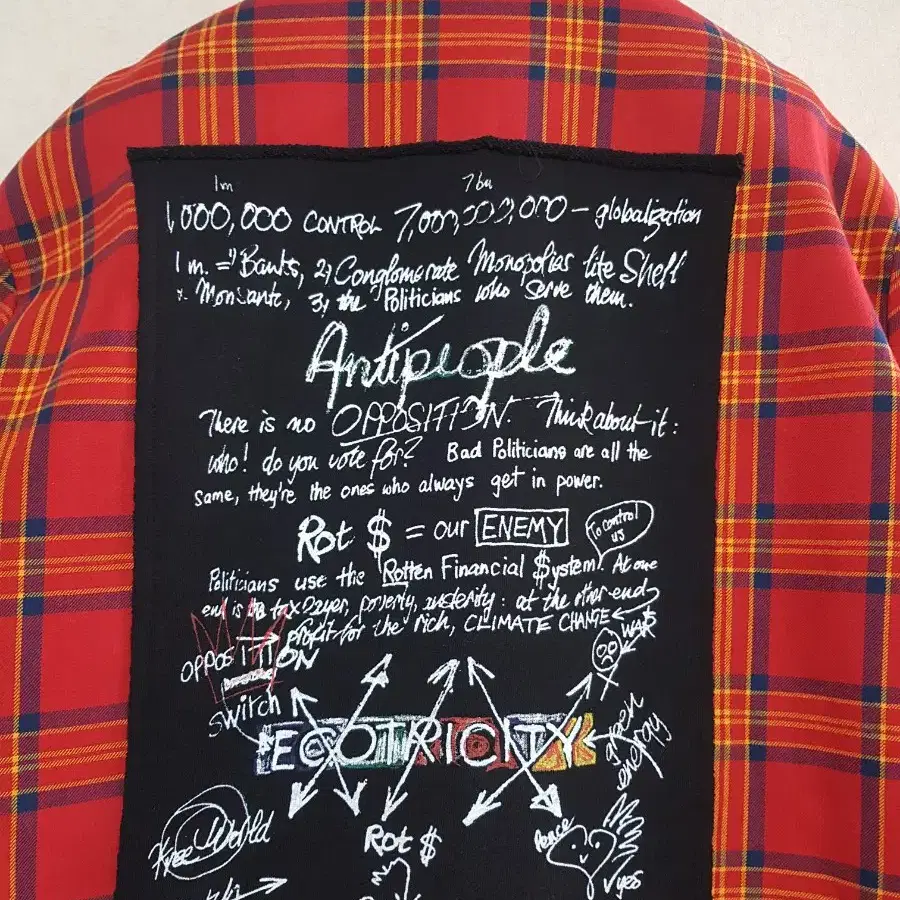 1m 7bn
1,000,000 CONTROL 7,000,000,000 - globalization
1 m. = 1) Banks, 2) Conglomerate Monopolies like Shell
+ Monsanto, 3) the Politicians who serve them.
Antipeople
There is no OPPOSITION. Think about it:
who! do you vote for? Bad Politicians are all the
same, they're the ones who always get in power.
Rot $ = our ENEMY
To control
us
Politicians use the Rotten Financial $ystem. At one
end is the tax payer, poverty, austerity: at the other end
profit for the rich, CLIMATE CHANGE
WAR
OPPOSITION
Switch
ECOTRICITY
green
energy
Free World
Rot $
Peace
yes